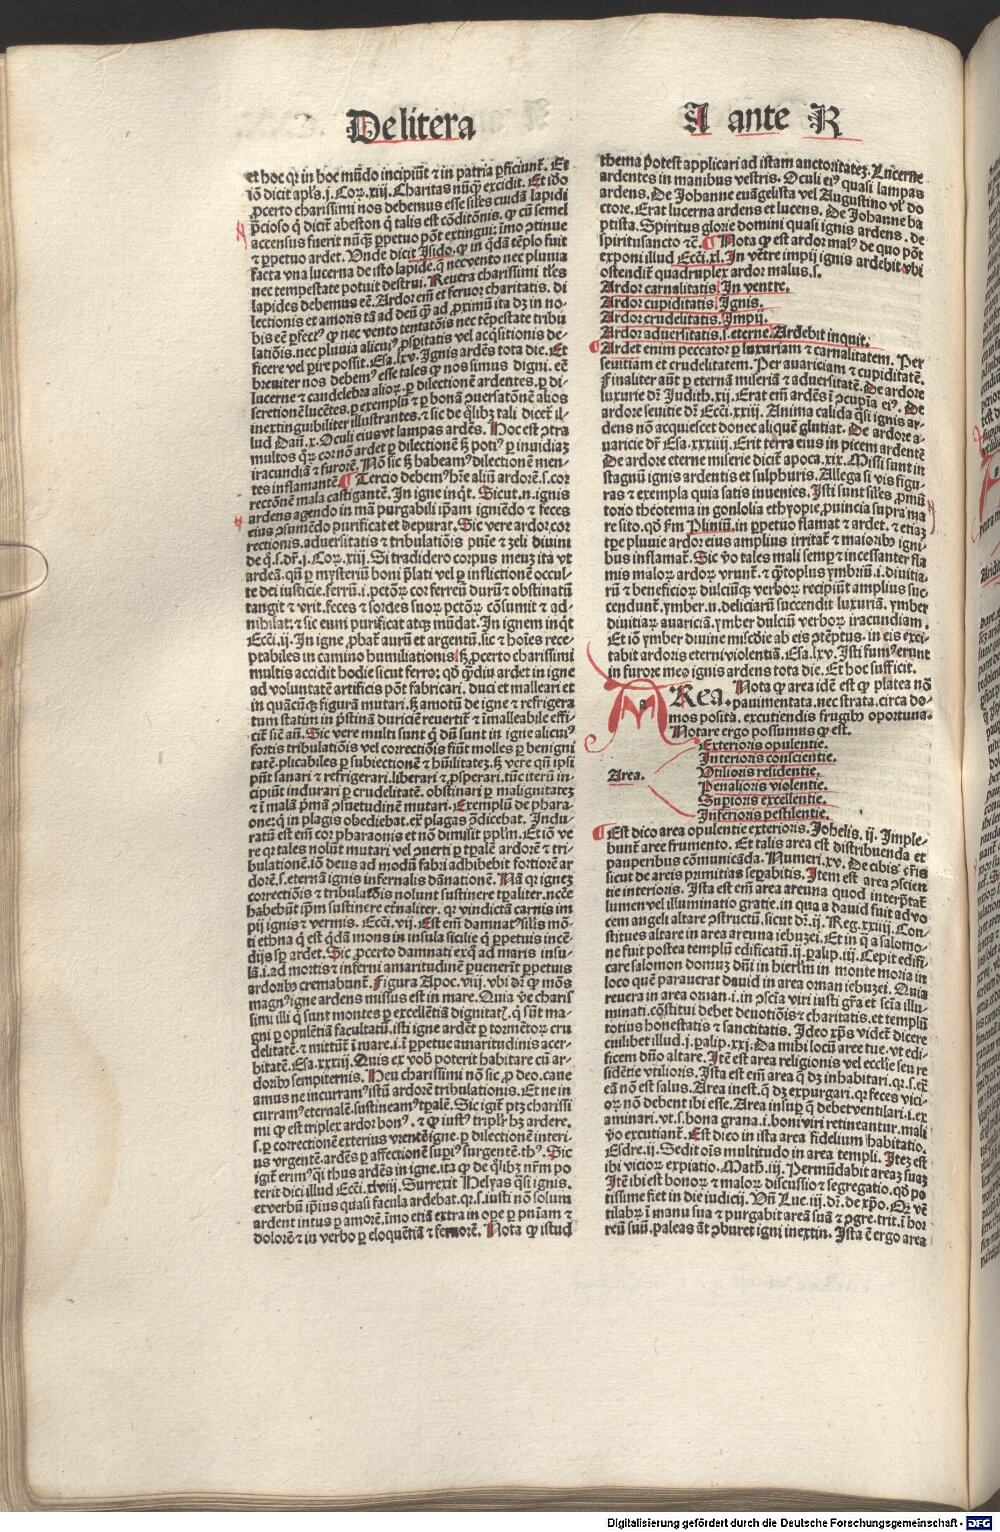 De litera
A ante R
et hoc qꝛ in hoc mūdo incipiūt ⁊ in patria ꝑficiunt̄. Et
iō dicit apl's .j. Coꝝ. xiij. Charitas nūqꝫ excidit. Et ideo
ꝓcerto charissimi nos debemus esse sil'es cuidā lapidi
p̄cioso q̄ dicit̄ abeston q̄ talis est cōditōnis. qꝫ cū semel
accensus fuerit nūqꝫ ꝑpetuo pōt extingui: īmo ꝯtinue
⁊ ꝑpetuo ardet. Unde dicit Isido. qꝫ in q̄dā tēplo fuit
facta vna lucerna de isto lapide. q̄ nec vento nec pluvia
nec tempestate potuit destrui. Revera charissimi tl'es
lapides debemus eē. Ardor em̄ et feruor charitatis. di
lectionis et amoris tā ad deū qꝫ ad ꝓximū ita dꝫ in no-
bis eē ꝑfect⁹ qꝫ nec vento tentatōis nec tēpestate tribu
latiōis. nec pluvia alicui⁹ ꝓsꝑitatis vel acq̄sitionis de-
ficere vel ꝑire possit. Esa. lxv. Ignis ardēs tota die. Et
breuiter nos debem⁹ esse tales qꝫ nos simus digni. eē
lucerne ⁊ candelabra alioꝝ. ꝑ dilectionē ardentes. ꝑ di-
scretionē lucētes. ꝑ exemplū ⁊ ꝑ bonā ꝯuersatōnē alios
inextinguibiliter illustrantes. ⁊ sic de q̄libꝫ tali dicet̄ il-
lud Dañ. x. Oculi eius vt lampas ardēs. Hoc est ꝯtra
multos qꝝ cor nō ardet ꝑ dilectionē sꝫ poti⁹ ꝑ inuidiaꝫ
iracundiā ⁊ furorē. Nō sic sꝫ habeam⁹ dilectionē men-
tes inflamantē. Tercio debem⁹ h̄re aliū ardorē. s. cor
rectōnē mala castigantē. In igne inq̄t. Sicut. n. ignis
ardens agendo in mā purgabili ip̄am igniēdo ⁊ feces
eius ꝯsumēdo purificat et depurat. Sic vere ardor cor
rectionis. aduersitatis ⁊ tribulatiōis pūit ⁊ zeli diuini
de q̄. s. dr̄. j. Coꝝ. xiij. Si tradidero corpus meuꝫ ita vt
ardeā. qn̄ ꝑ mysteriū boni p̄lati vel ꝑ inflictionē occul-
te dei iusticie. ferrū. i. pctōꝝ cor ferreū durū ⁊ obstinatū
tangit ⁊ vrit. feces ⁊ sordes suoꝝ pctōꝝ cōsumit ⁊ ad-
nihilat: ⁊ sic eum purificat atqꝫ mūdat. In ignem inq̄t
Ecci. ij. In igne ꝓbat̄ aurū et argentū. sic ⁊ hoīes rece-
ptabiles in camino humiliationis. sꝫ ꝓcerto charissimi
multis accidit hodie sicut ferro: qō qꝫdiu ardet in igne
ad voluntatē artificis pōt fabricari. duci et malleari et
in quācūqꝫ figurā mutari. sꝫ amotū de igne ⁊ refrigera
tum statim in p̄stinā duriciē reuertit̄ ⁊ imalleabile effi-
cit̄ sic añ. Sic vere multi sunt q̄ dū sunt in igne alicui⁹
fortis tribulatiōis vel correctiōis fiūt molles ꝑ benigni
tatē. plicabiles ꝑ subiectionē ⁊ hūilitateꝫ. sꝫ vere qn̄ ipsi
pn̄t sanari ⁊ refrigerari. liberari ⁊ ꝓsperari. tūc iterū in-
cipiūt indurari ꝑ crudelitatē. obstinari ꝑ malignitateꝫ
⁊ ī malā p̄mā ꝯsuetudinē mutari. Exemplū de phara-
one: q̄ in plagis obediebat. ex̄ plagas ꝯ̄dicebat. Indu-
ratū est em̄ cor pharaonis et nō dimisit pplm̄. Et iō ve
re qꝛ tales nolūt mutari vel ꝯuerti ꝑ tꝑalē ardorē ⁊ tri-
bulationē. iō deus ad modū fabri adhibebit fortiorē ar
dorē. s. eternā ignis infernalis dānationē. Nā qꝛ igneꝫ
correctiōis ⁊ tribulatōis nolunt sustinere tꝑaliter. nccē
habebūt ip̄m sustinere et̄naliter. qꝛ vindictā carnis im
pij ignis ⁊ vermis. Ecci. vij. Est em̄ damnat⁹ silis mō-
ti ethna q̄ est q̄dā mons in insula sicilie q̄ ꝑpetuis incē-
dijs sꝑ ardet. Sic ꝓcerto damnati exq̄ ad maris insu-
lā. i. ad mortis ⁊ inferni amaritudinē ꝑuenerīt ꝑpetuis
ardoribꝫ cremabunt̄. Figura Apoc. viij. vbi dr̄ qꝫ mōs
magn⁹ igne ardens missus est in mare. Quia ve charis
simi illi q̄ sunt montes ꝑ excellētiā dignitatꝭ. q̄ sūt ma-
gni ꝑ opulētiā facultatū. isti igne ardēt ꝑ tormētoꝝ cru
delitatē. ⁊ mittūt̄ ī mare. i. ī ꝑpetue amaritudinis acer-
bitatē. Esa. xxxiij. Quis ex vob̄ poterit habitare cū ar-
doribꝫ sempiternis. Heu charissimi nō sic ꝓ deo. caue
amus ne incurram⁹ istū ardorē tribulationis. Et ne in
curram⁹ eternalē. sustineam⁹ tꝑalē. Sic igit̄ ptꝫ charissi
mi qꝫ est triplex ardor bon⁹. ⁊ qꝫ iust⁹ triplr̄ hꝫ ardere.
s. ꝑ correctionē exterius vrentē igne. ꝑ dilectionē interi-
us vrgentē. ardēs ꝑ affectionē suꝑi⁹ surgentē. th⁹. Sic
igit̄ erim⁹ q̄si thus ardēs in igne. ita qꝫ de q̄libꝫ nr̄m po
terit dici illud Ecci. xlviij. Surrexit Helyas q̄si ignis.
et verbū ip̄ius quasi facula ardebat. qꝛ. s. iusti nō solum
ardent intus ꝑ amorē. īmo etiā extra in ope ꝑ pn̄iam ⁊
dolorē ⁊ in verbo ꝑ eloquētiā ⁊ feruorē. Nota qꝫ istud
thema potest applicari ad istam auctoritateꝫ. Lucerne
ardentes in manibus vestris. Oculi ei⁹ quasi lampas
ardens. De Johanne euāgelista vel Augustino vl' do
ctore. Erat lucerna ardens et lucens. De Johanne ba
ptista. Spiritus glorie domini quasi ignis ardens. de
spiritusancto ⁊c̄. Nota qꝫ est ardor mal⁹ de quo pōt
exponi illud Ecci. xl. In vētre impij ignis ardebit vbi
ostendit̄ quadruplex ardor malus. s.
Ardor carnalitatis. In ventre.
Ardor cupiditatis. Ignis.
Ardor crudelitatis. Impij.
Ardor aduersitatis. s. eterne. Ardebit inquit.
Ardet enim peccator ꝑ luxuriam ⁊ carnalitatem. Per
seuitiam et crudelitatem. Per auariciam ⁊ cupiditatē.
Finaliter aūt ꝑ eternā miseriā ⁊ aduersitatē. De ardore
luxurie dr̄ Judith. xij. Erat em̄ ardēs ī ꝯcupia ei⁹. De
ardore seuitie dr̄ Ecci. xxiij. Anima calida q̄si ignis ar-
dens nō acquiescet donec aliquē glutiat. De ardore a-
uaricie dr̄ Esa. xxxiiij. Erit terra eius in picem ardentē
De ardore eterne miserie dicit̄ apoca. xix. Missi sunt in
stagnū ignis ardentis et sulphuris. Allega si vis figu-
ras ⁊ exempla quia satis inuenies. Isti sunt sil'es ꝓmū
torio theotema in gonlolia ethyopie ꝓuincia supra ma
re sito. qō fm̄ Pliniū. in ꝑpetuo flamat ⁊ ardet. ⁊ etiaꝫ
tꝑe pluuie ardor eius amplius irritat̄ ⁊ maioribꝫ igni-
bus inflamat̄. Sic v̄o tales mali semꝑ ⁊ incessanter fla
mis maloꝝ ardoꝝ vrunt̄. ⁊ q̄ꝫtoplus ymbriū. i. diuitia-
rū ⁊ beneficioꝝ dulciūqꝫ verboꝝ recipiūt amplius suc-
cendunt̄. ymber. n. deliciarū succendit luxuriā. ymber
diuitiaꝝ auariciā. ymber dulciū verboꝝ iracundiam.
Et iō ymber diuine mīscd̄ie ab eis ꝯtēptus. in eis exci-
tabit ardoris eterni violentiā. Esa. lxv. Isti fum⁹ erunt
in furore meo ignis ardens tota die. Et hoc sufficit.
ARea. Nota qꝫ area idē est qꝫ platea nō
pauimentata. nec strata. circa do-
mos posita. excutiendis frugibꝫ oportuna.
Notare ergo possumus qꝫ est.
Area.
Exterioris opulentie.
Interioris conscientie.
Utilioris residentie.
Penalioris violentie.
Suꝑioris excellentie.
Inferioris pestilentie.
Est dico area opulentie exterioris. Johelis. ij. Imple-
bunt̄ aree frumento. Et talis area est distribuenda et
pauperibus cōmunicāda. Numeri. xv. De cibis vr̄is
sicut de areis primitias seꝑabitis. Item est area ꝯscien
tie interioris. Ista est em̄ area areuna quod interp̄tat̄
lumen vel illuminatio gratie. in qua a dauid fuit ad vo
cem angeli altare ꝯstructū. sicut dr̄. ij. Reg. xxiiij. Con-
stitues altare in area areuna iebuzei. Et in q̄ a salomo-
ne fuit postea templū edificatū. ij. palip. iij. Cepit edifi-
care salomon domuꝫ dn̄i in hierlm̄ in monte moria in
loco quē parauerat dauid in area ornan iebuzei. Quia
reuera in area ornan. i. in ꝯscīa viri iusti gr̄a et scīa illu-
minati. cōstitui debet deuotiōis ⁊ charitatis. et templū
totius honestatis ⁊ sanctitatis. Ideo xp̄s videt̄ dicere
cuilibet illud. j. palip. xxj. Da mihi locū aree tue. vt edi-
ficem dn̄o altare. Itē est area religionis vel ecclīe seu re
sidētie vtilioris. Ista est em̄ area q̄ dꝫ inhabitari. qꝛ. s. ex̄
eā nō est salus. Area inest. q̄ dꝫ expurgari. qꝛ feces vici-
oꝝ nō debent ibi esse. Area insuꝑ q̄ debet ventilari. i. ex
aminari. vt. s. bona grana. i. boni viri retineantur. mali
v̄o excutiant̄. Est dico in ista area fidelium habitatio.
Esdre. ij. Sedit oīs multitudo in area templi. Iteꝫ est
ibi vicior expiatio. Math̄. iij. Permūdabit areaꝫ suaꝫ
Itē ibi est bonoꝝ ⁊ maloꝝ discussio ⁊ segregatio. qō po
tissime fiet in die iudicij. Vn̄ Luc. iij. dr̄. de xp̄o. Cuꝰ vē
tilabꝝ ī manu sua ⁊ purgabit areā suā ⁊ ꝯgre. trit. ī hor
reū suū. paleas āt ꝯburet igni inextin. Ista ē ergo area
Digitalisierung gefördert durch die Deutsche Forschungsgemeinschaft - DFG